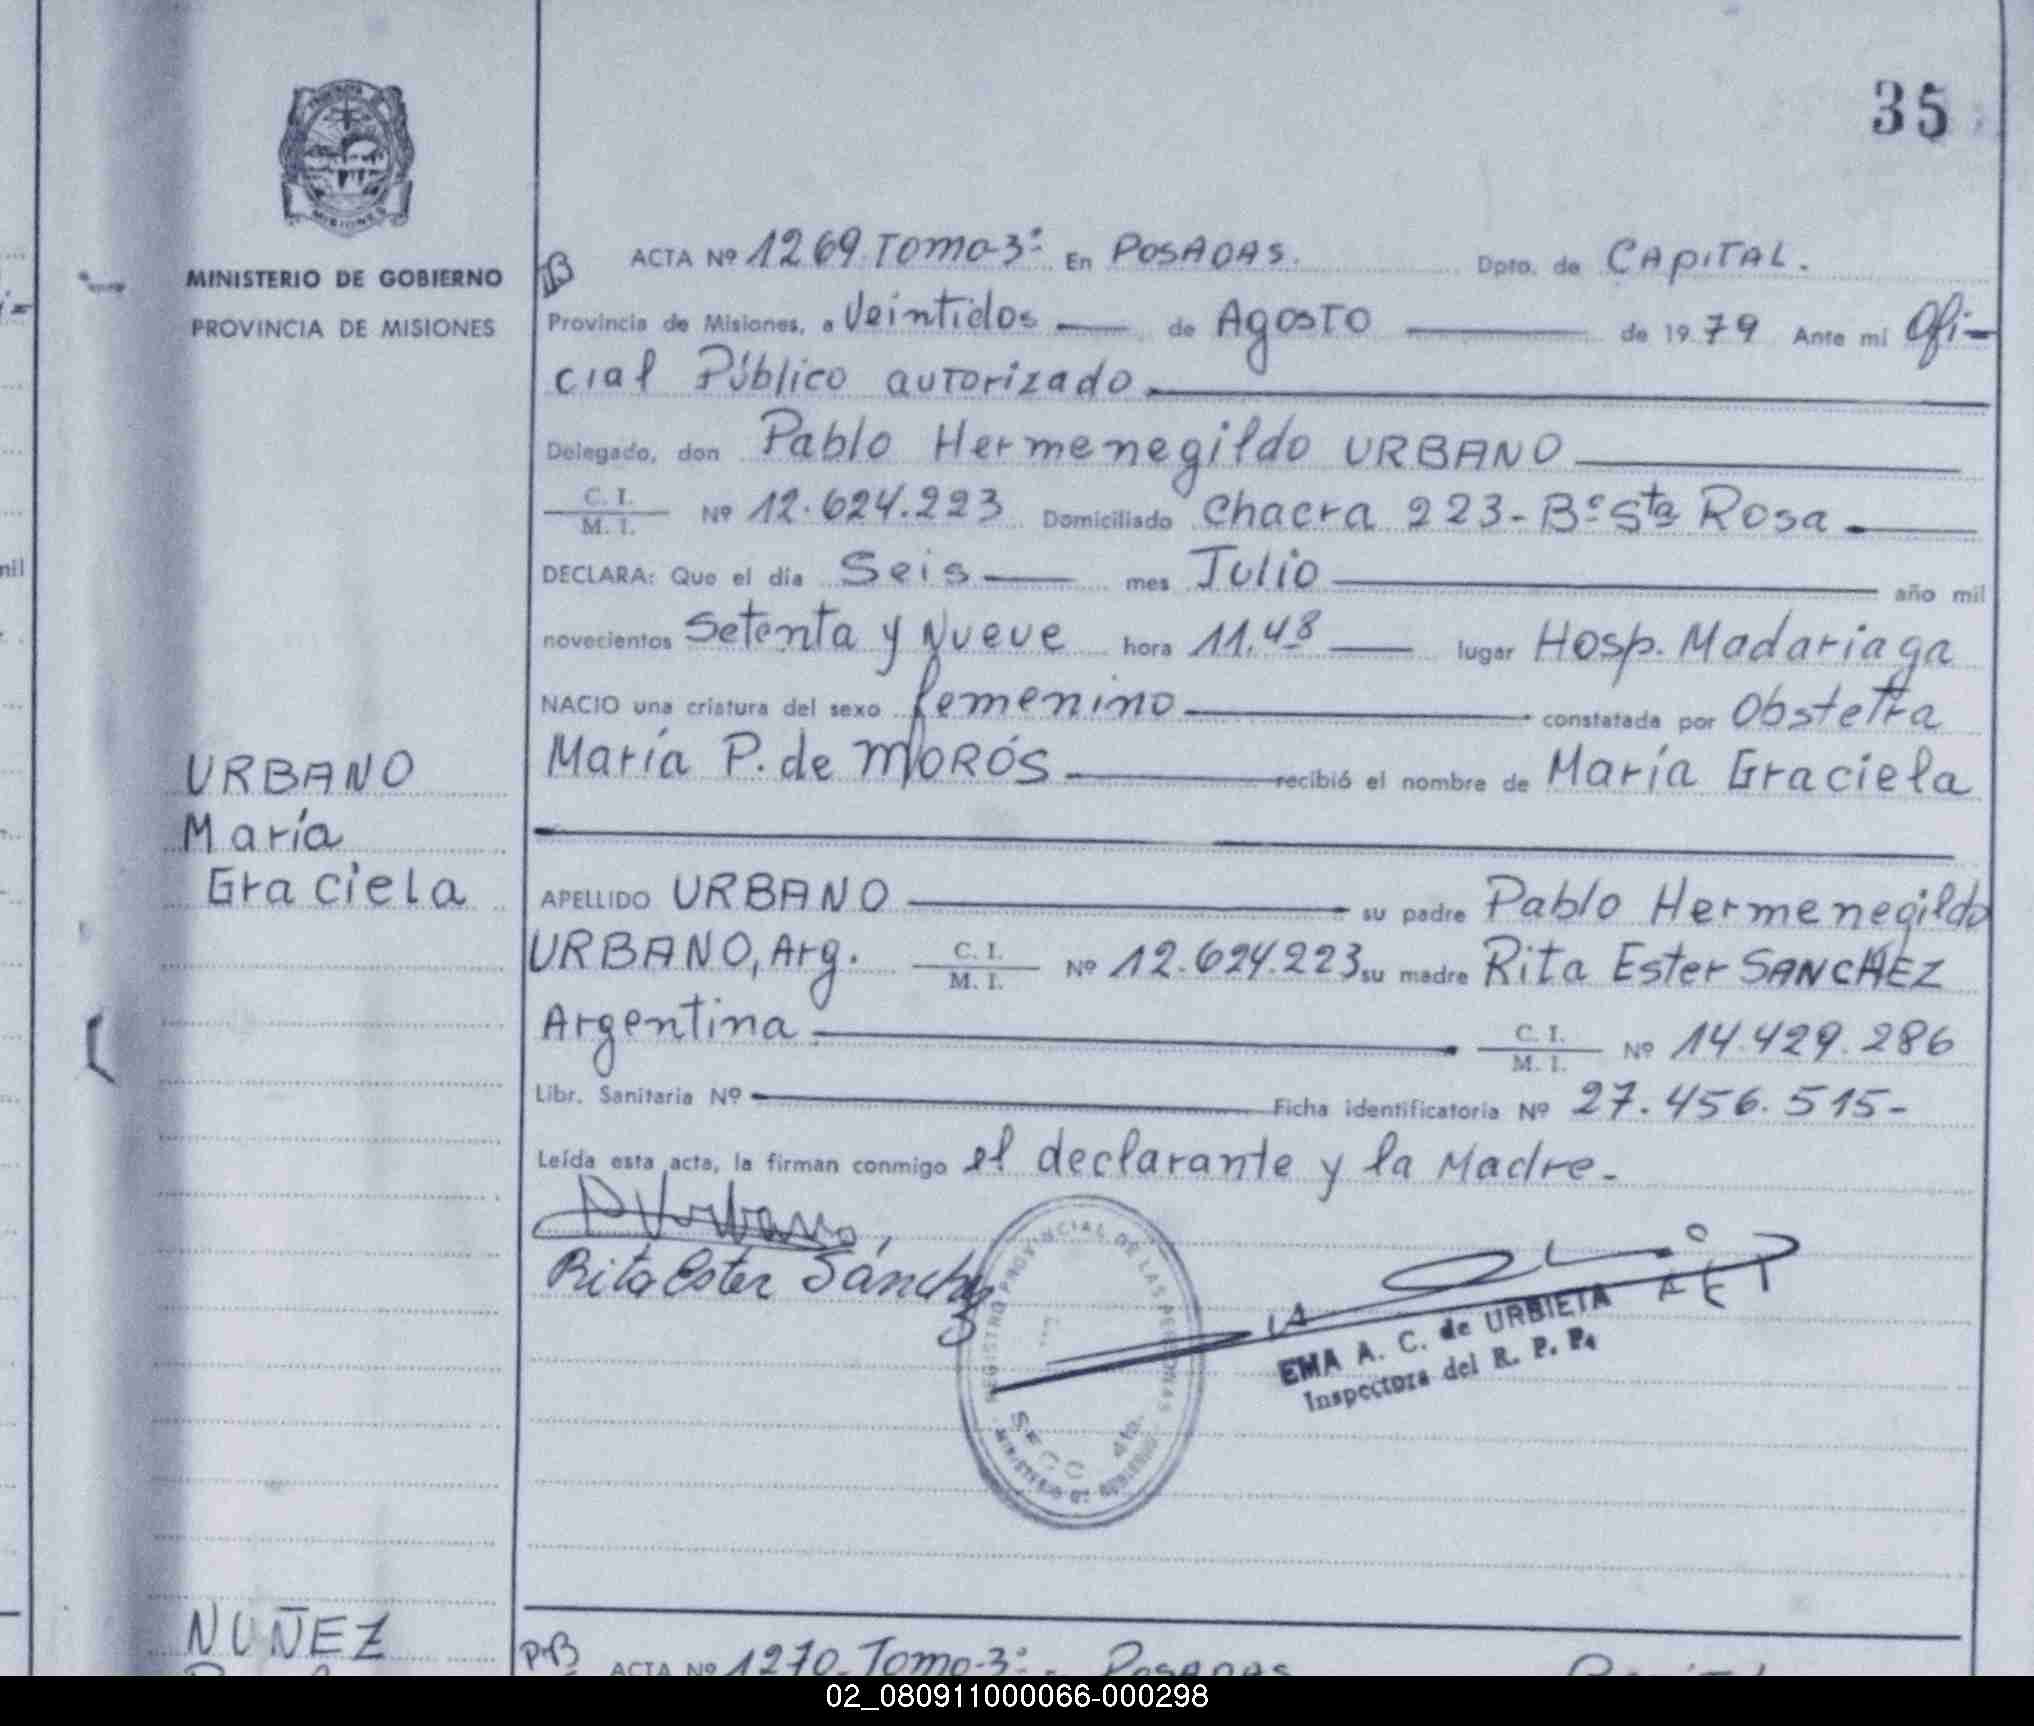 35
MISIONES
MINISTERIO DE GOBIERNO
PROVINCIA DE MISIONES
URBANO
María
Graciela
ACTA Nº 1269 Tomo-3º En POSADAS. Dpto. de CAPITAL.
Provincia de Misiones, a Veintidos de Agosto de 1979 Ante mi Ofi-
cial Público autorizado
Delegado, don Pablo Hermenegildo URBANO
C. I.
M. I. Nº 12.624.223 Domiciliado Chacra 223-Bº Sta Rosa
DECLARA: Que el día Seis mes Julio año mil
novecientos Setenta y Nueve hora 11.48 lugar Hosp. Madariaga
NACIO una criatura del sexo femenino constatada por Obstetra
María P. de MORÓS recibió el nombre de María Graciela
APELLIDO URBANO su padre Pablo Hermenegildo
URBANO, Arg. C. I.
M. I. Nº 12.624.223 su madre Rita Ester SANCHEZ
Argentina C. I.
M. I. Nº 14.429.286
Libr. Sanitaria Nº Ficha identificatoria Nº 27.456.515-
Leída esta acta, la firman conmigo el declarante y la Madre.
P Urbano
Rita Ester Sánchez
REGISTRO PROVINCIAL DE LAS PERSONAS
SECC 4ta.
MINISTERIO DE GOBIERNO
EMA A. C. de URBIETA
Inspectora del R. P. P.
NUÑEZ
ACTA Nº 1270 Tomo-3º POSADAS
02_080911000066-000298